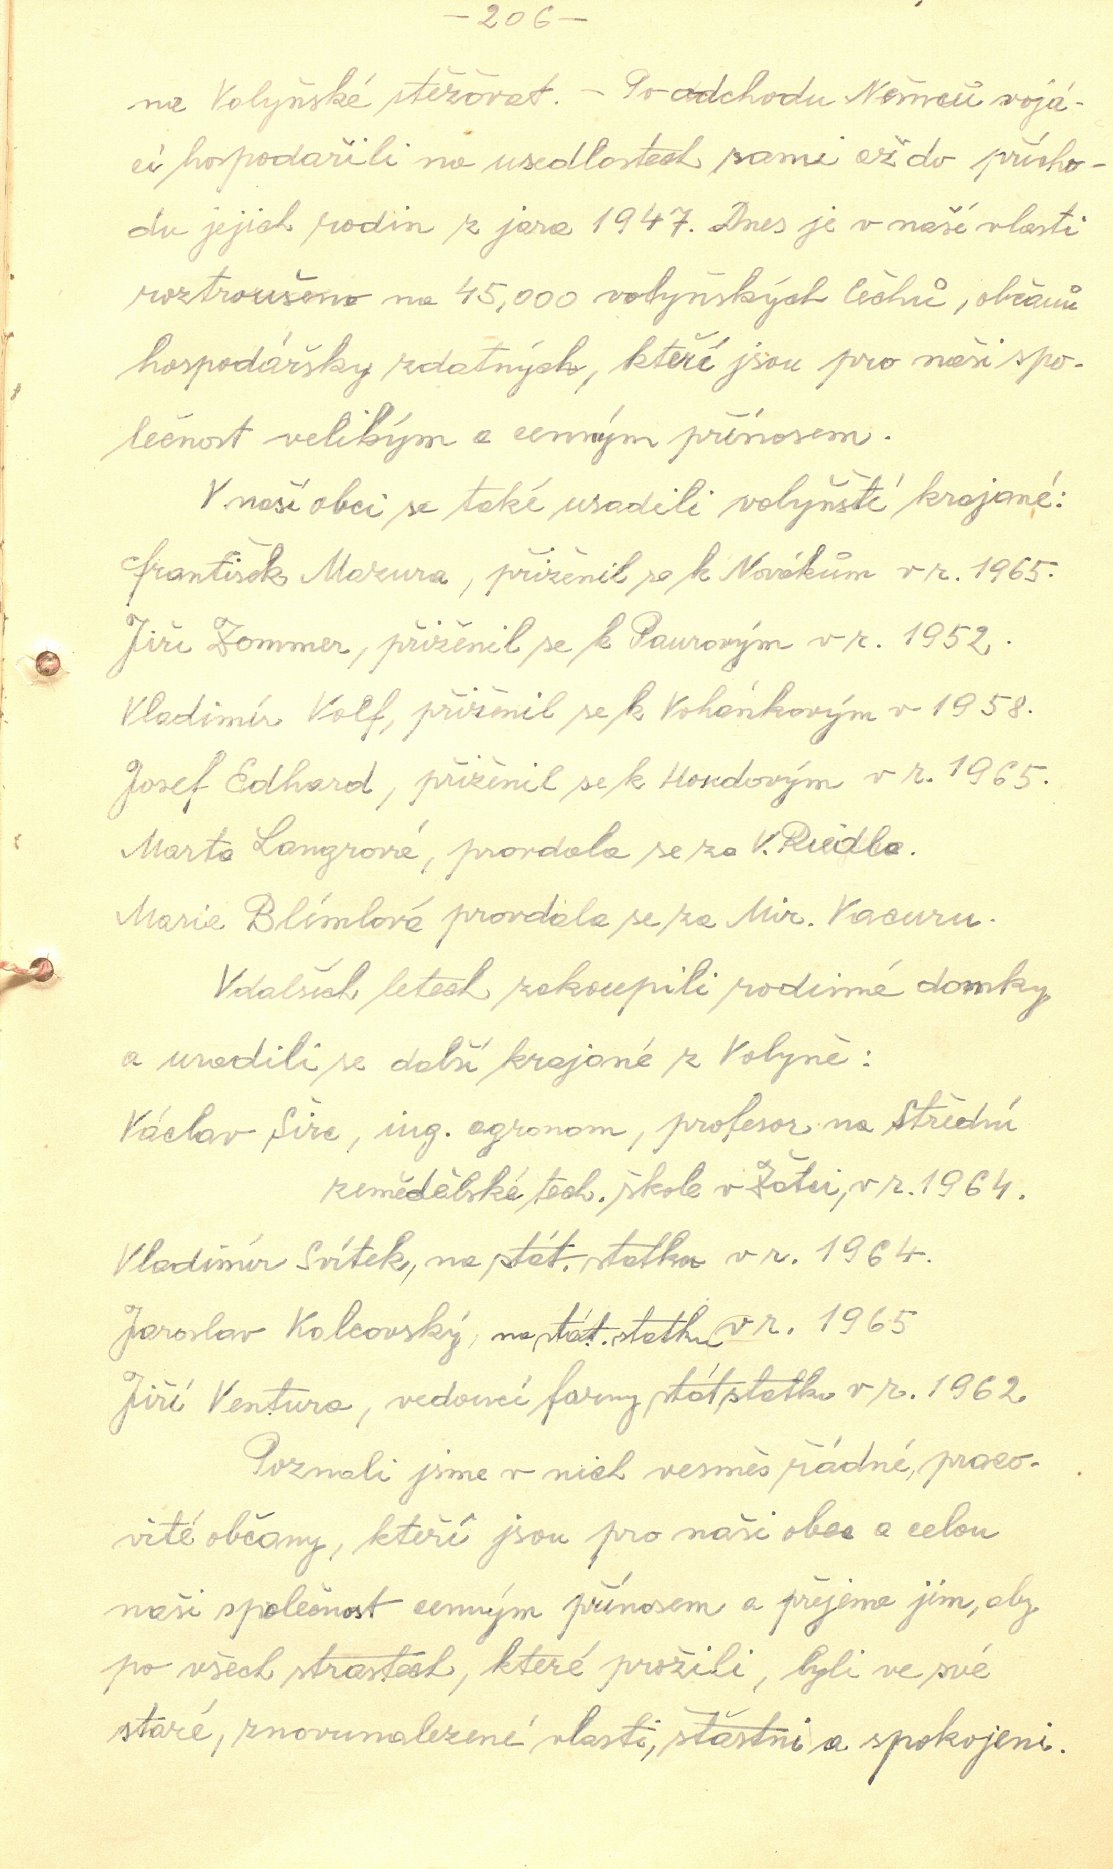 - 206 -
na Volyňské stěžovat. - Po odchodu Němců vojá-
ci hospodařili na usedlostech sami až do přícho-
du jejich rodin z jara 1947. Dnes je v naší vlasti
roztroušeno na 45,000 volyňských Čechů, občanů
hospodářsky zdatných, kteří jsou pro naši spo-
lečnost velikým a cenným přínosem.
V naší obci se také usadili volyňští krajané:
František Mazura, přiženil se k Novákům v r. 1965.
Jiří Zommer, přiženil se k Paurovým v r. 1952.
Vladimír Volf, přiženil se k Vohánkovým v 1958.
Josef Edhard, přiženil se k Houdovým v r. 1965.
Marta Langrová, provdala se za V. Riedla.
Marie Blímlová provdala se za Mir. Vacuru.
V dalších letech zakoupili rodinné domky
a usadili se další krajané z Volyně:
Václav Širc, ing. agronom, profesor na Střední
zemědělské tech. škole v Žatci, v r. 1964.
Vladimír Svítek, na stát. statku v r. 1964.
Jaroslav Kolcovský, na stát. statku v r. 1965
Jiří Ventura, vedoucí farmy stát statku v r. 1962
Poznali jsme v nich vesměs řádné, praco-
vité občany, kteří jsou pro naši obec a celou
naši společnost cenným přínosem a přejeme jim, aby
po všech strastech, které prožili, byli ve své
staré, znovunalezené vlasti, šťastni a spokojeni.